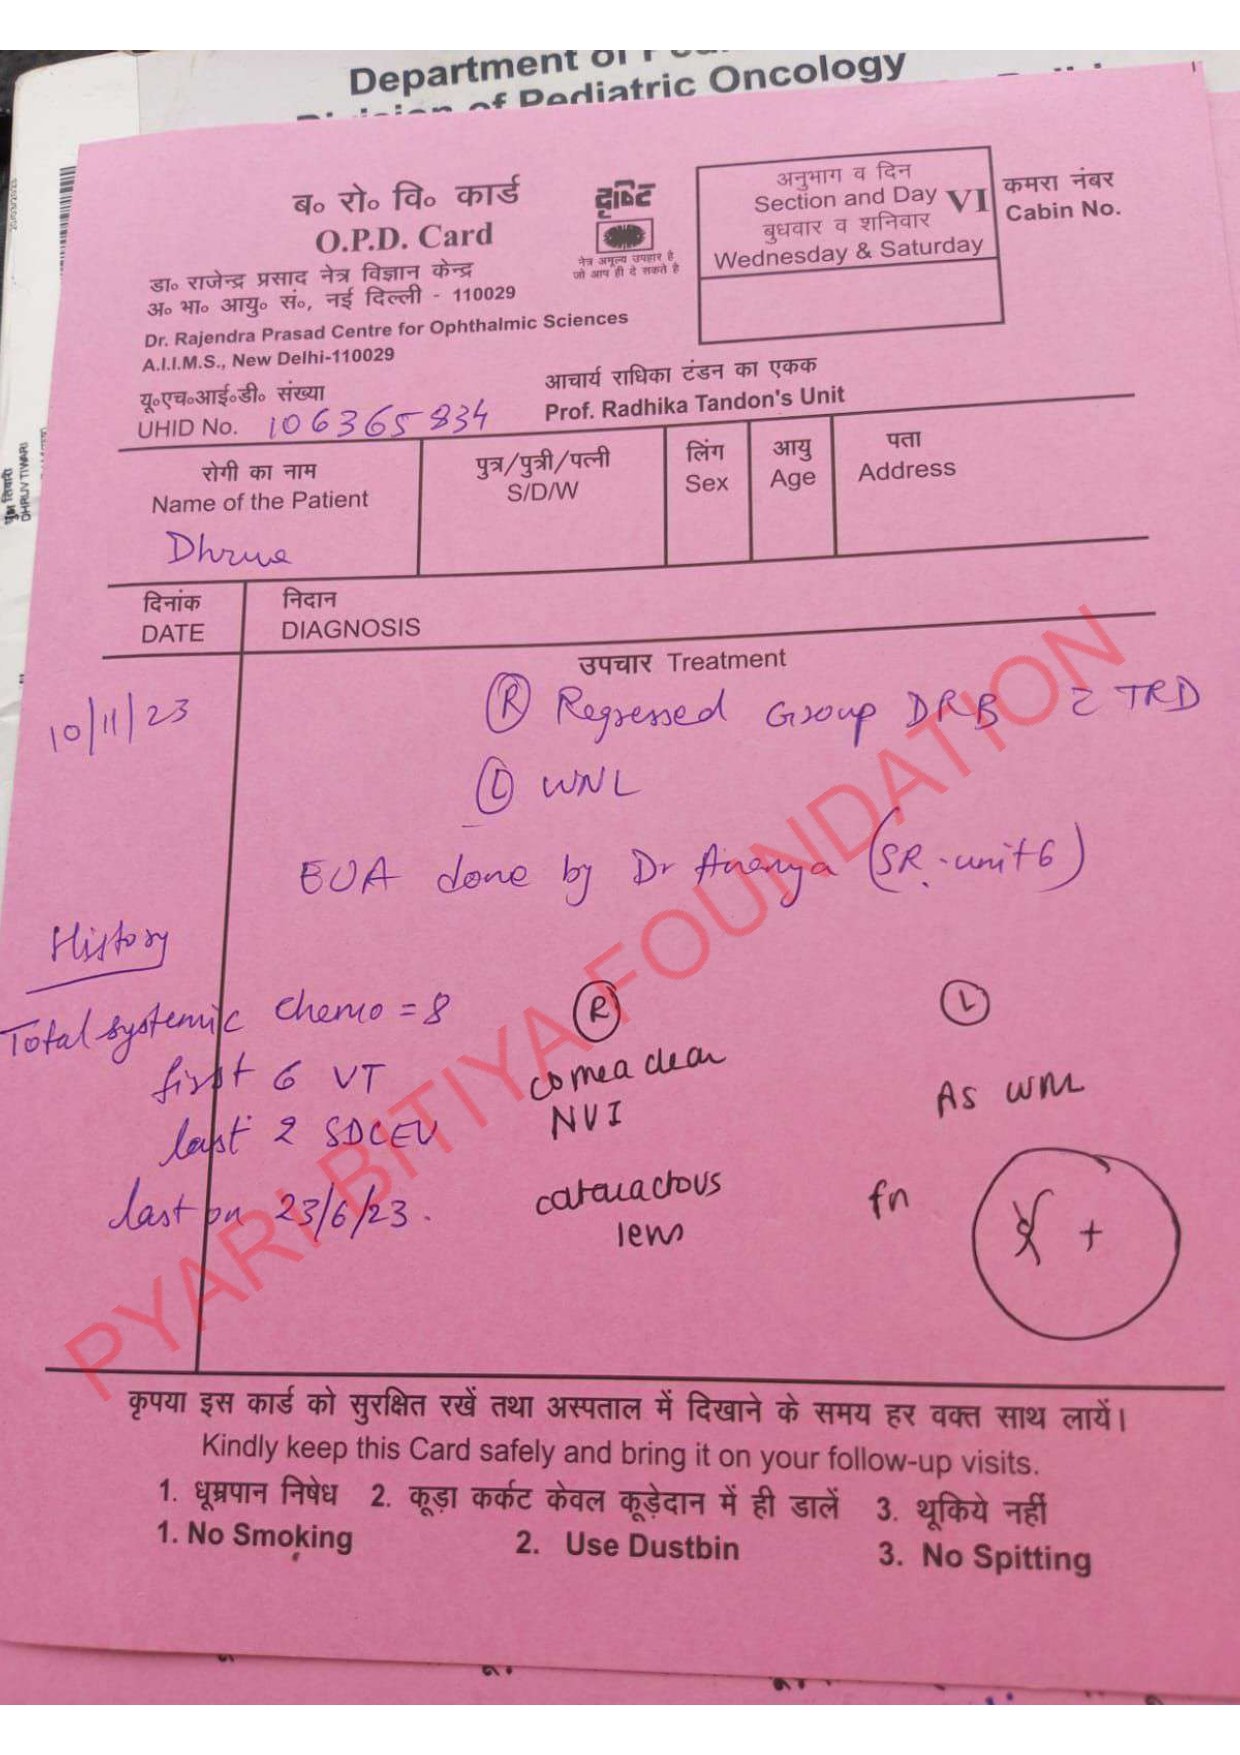 Department of
Division of Pediatric Oncology
ब० रो० वि० कार्ड
O.P.D. Card
डा० राजेन्द्र प्रसाद नेत्र विज्ञान केन्द्र
अ० भा० आयु० सं०, नई दिल्ली - 110029
Dr. Rajendra Prasad Centre for Ophthalmic Sciences
A.I.I.M.S., New Delhi-110029
दृष्टि
नेत्र अमूल्य उपहार है
जो आप ही दे सकते है
अनुभाग व दिन
Section and Day VI
बुधवार व शनिवार
Wednesday & Saturday
कमरा नंबर
Cabin No.
यू०एच०आई०डी० संख्या
UHID No. 106365834
आचार्य राधिका टंडन का एकक
Prof. Radhika Tandon's Unit
रोगी का नाम
Name of the Patient
पुत्र/पुत्री/पत्नी
S/D/W
लिंग
Sex
आयु
Age
पता
Address
Dhruve
दिनांक
DATE
निदान
DIAGNOSIS
उपचार Treatment
10/11/23
R Regressed Group DRB c TRD
L WNL
EUA done by Dr Ananya (SR. unit 6)
History
Total systemic chemo = 8
first 6 VT
last 2 SDCEV
last on 23/6/23.
R
cornea clear
NVI
cataractous
lens
L
As WNL
fn
+
PYARI BITIYA FOUNDATION
कृपया इस कार्ड को सुरक्षित रखें तथा अस्पताल में दिखाने के समय हर वक्त साथ लायें।
Kindly keep this Card safely and bring it on your follow-up visits.
1. धूम्रपान निषेध 2. कूड़ा कर्कट केवल कूड़ेदान में ही डालें 3. थूकिये नहीं
1. No Smoking 2. Use Dustbin 3. No Spitting
DHRUV TIWARI